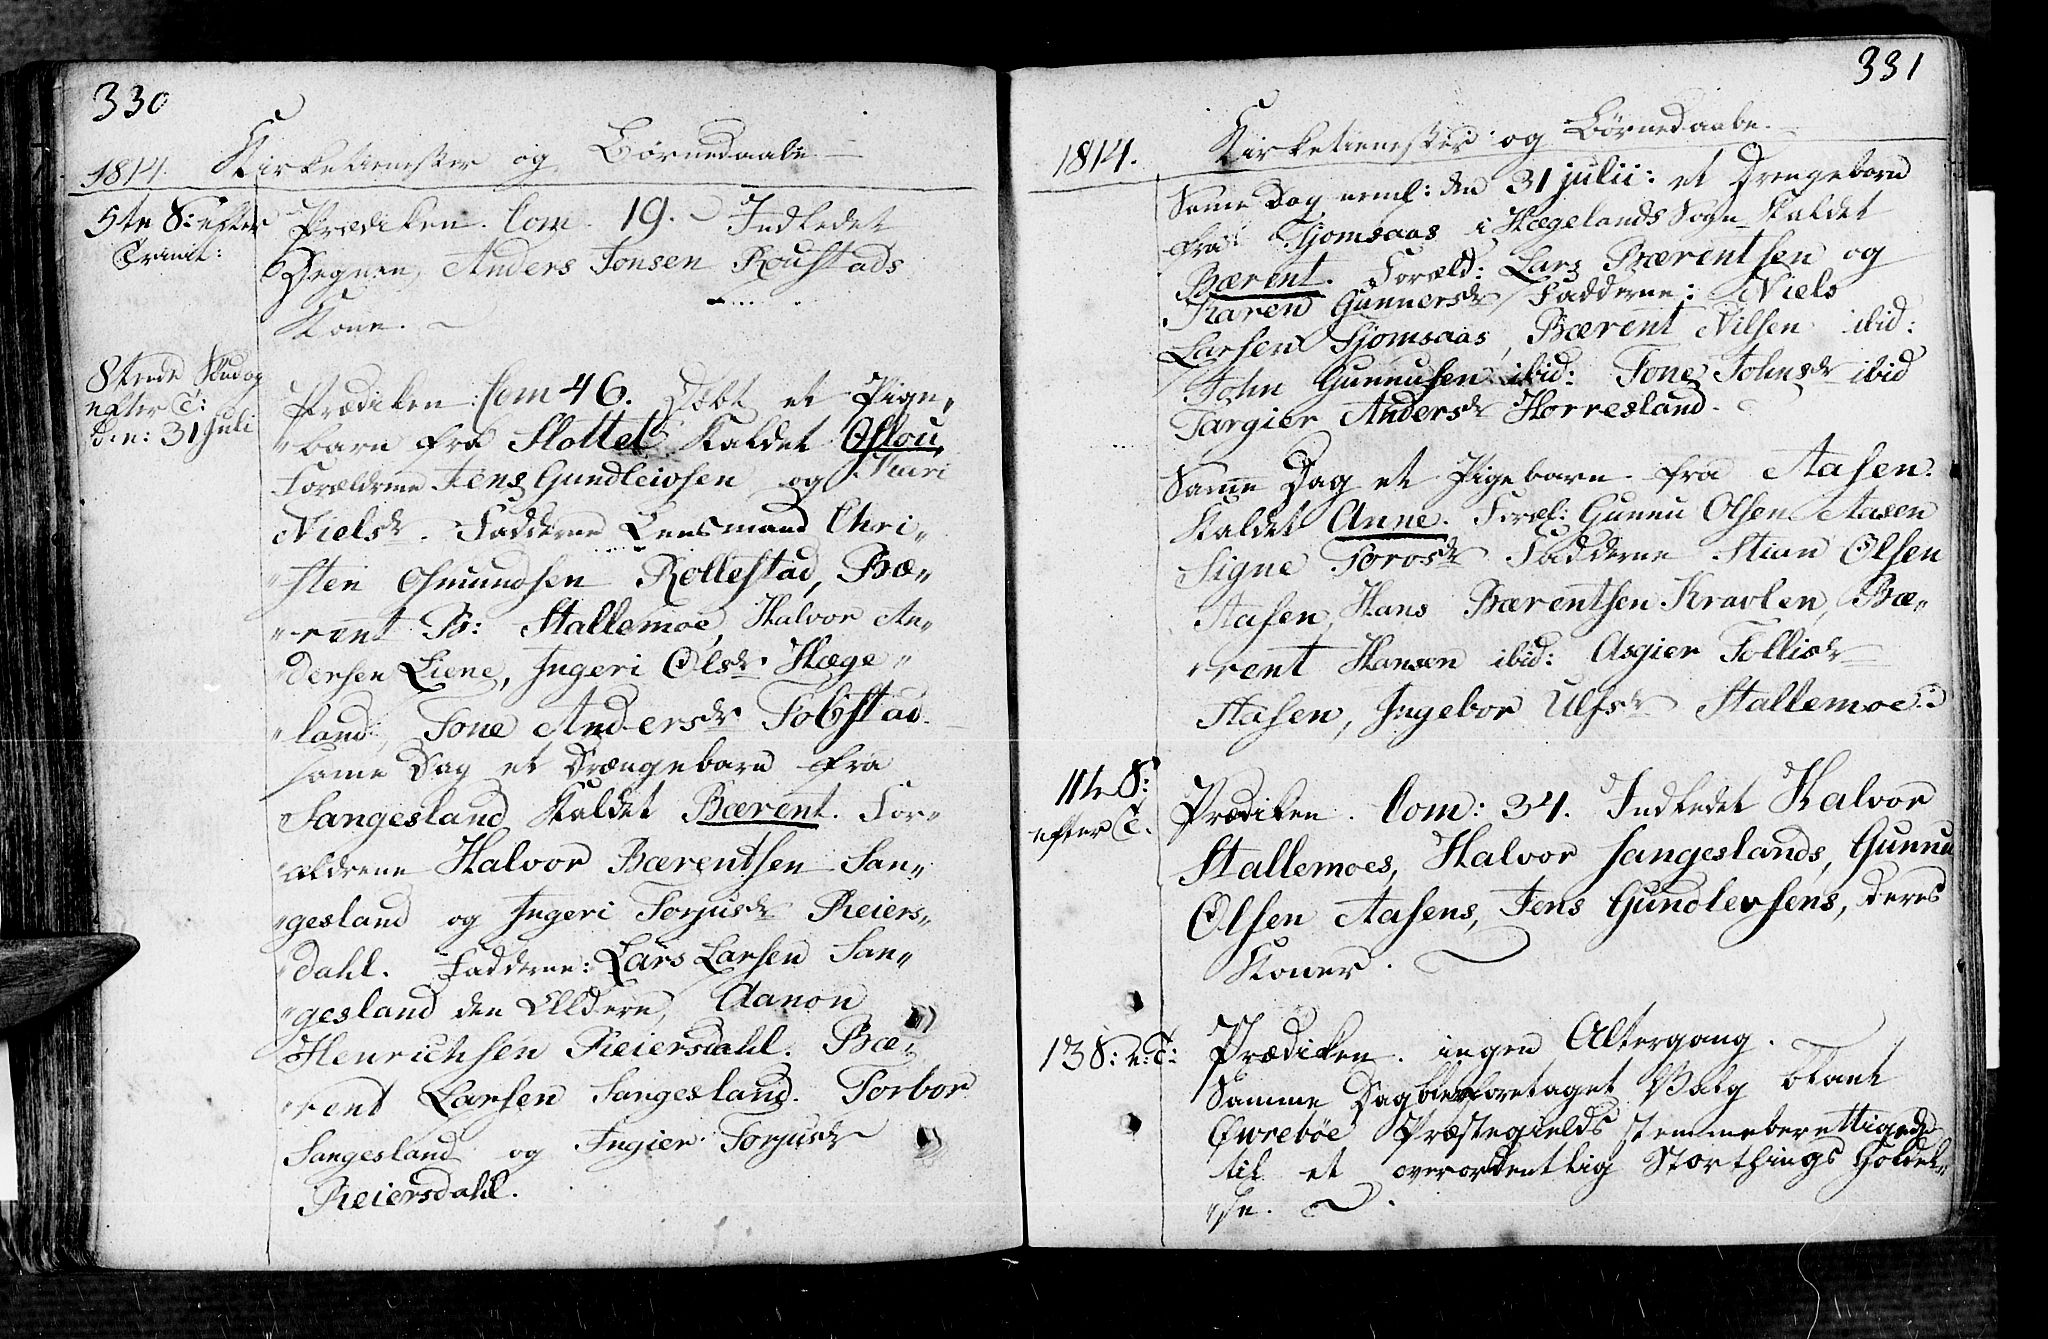 330
1814. Kirketienester og Börnedaabe
5te S: efter
Trinit:
Prædiken. Com. 19. Indledet
Degnen, Anders Jonsen Roustads
Kone.
8tende Sludag
efter T:
den: 31 Juli
Prædiken: Com 46. Döbt et Pige„
„barn fra Slottet kaldet Oslou,
Forældrene Jens Gundleivsen og Siuri
Nielsdr. Fadderne Lensmand Chri„
„sten Osmundsen Rollestad, Bæ„
„rent B: Stallemoe, Halvor An„
„dersen Liene, Ingeri Olsdr Hæge„
„land, Tone Andersdr Tobstad.
same Dag et Drængebarn fra
Sangesland kaldet Bærent. For„
„ældrene Halvor Bærentsen San„
„gesland og Ingeri Torjusdr Reiers„
„dahl. Fadderne: Lars Larsen San„
„gesland den Eldere, Aanon
Henrichsen Reiersdahl. Bæ„
„rent Larsen Sangesland. Torbor
Sangesland og Ingier Torjusdr
Reiersdahl.
331
1814. Kirketienester og Börnedaabe.
Same Dag neml: den 31 julii: et Drengebarn
fra Tjomsaas i Hægelands Sogn kaldet
Bærent. Foræld: Lars Bærentsen og
Karen Gunnersdr Fadderne: Niels
Larsen Tjomsaas, Bærent Nilsen ibid:
John Gunnusen ibid: Tone Johnsdr ibid
Targier Andersdr Horresland.
Same Dag et Pigebarn fra Aasen
kaldet Anne. Foræl: Gunnu Olsen Aasen
Signe Torosdr Fadderne Stian Olsen
Aasen, Hans Bærentsen Kravlen, Bæ„
„rent Hansen ibid: Asgier Tollisdr
Aasen, Ingebor Ulfsdr Stallemoe.
11te S:
efter T.
Prædiken. Com: 34. Indledet Halvor
Stallemoes, Halvor Sangeslands, Gunnu
Olsen Aasens, Jens Gundlevsens, deres
Koner.
13 S: e: T:
Prædiken. ingen Altergang.
Samme Dag blev foretaget Valg blant
Öwreböe Præstegields stemmeberettigede
til et overordentlig Storthings Holdel„
„se.